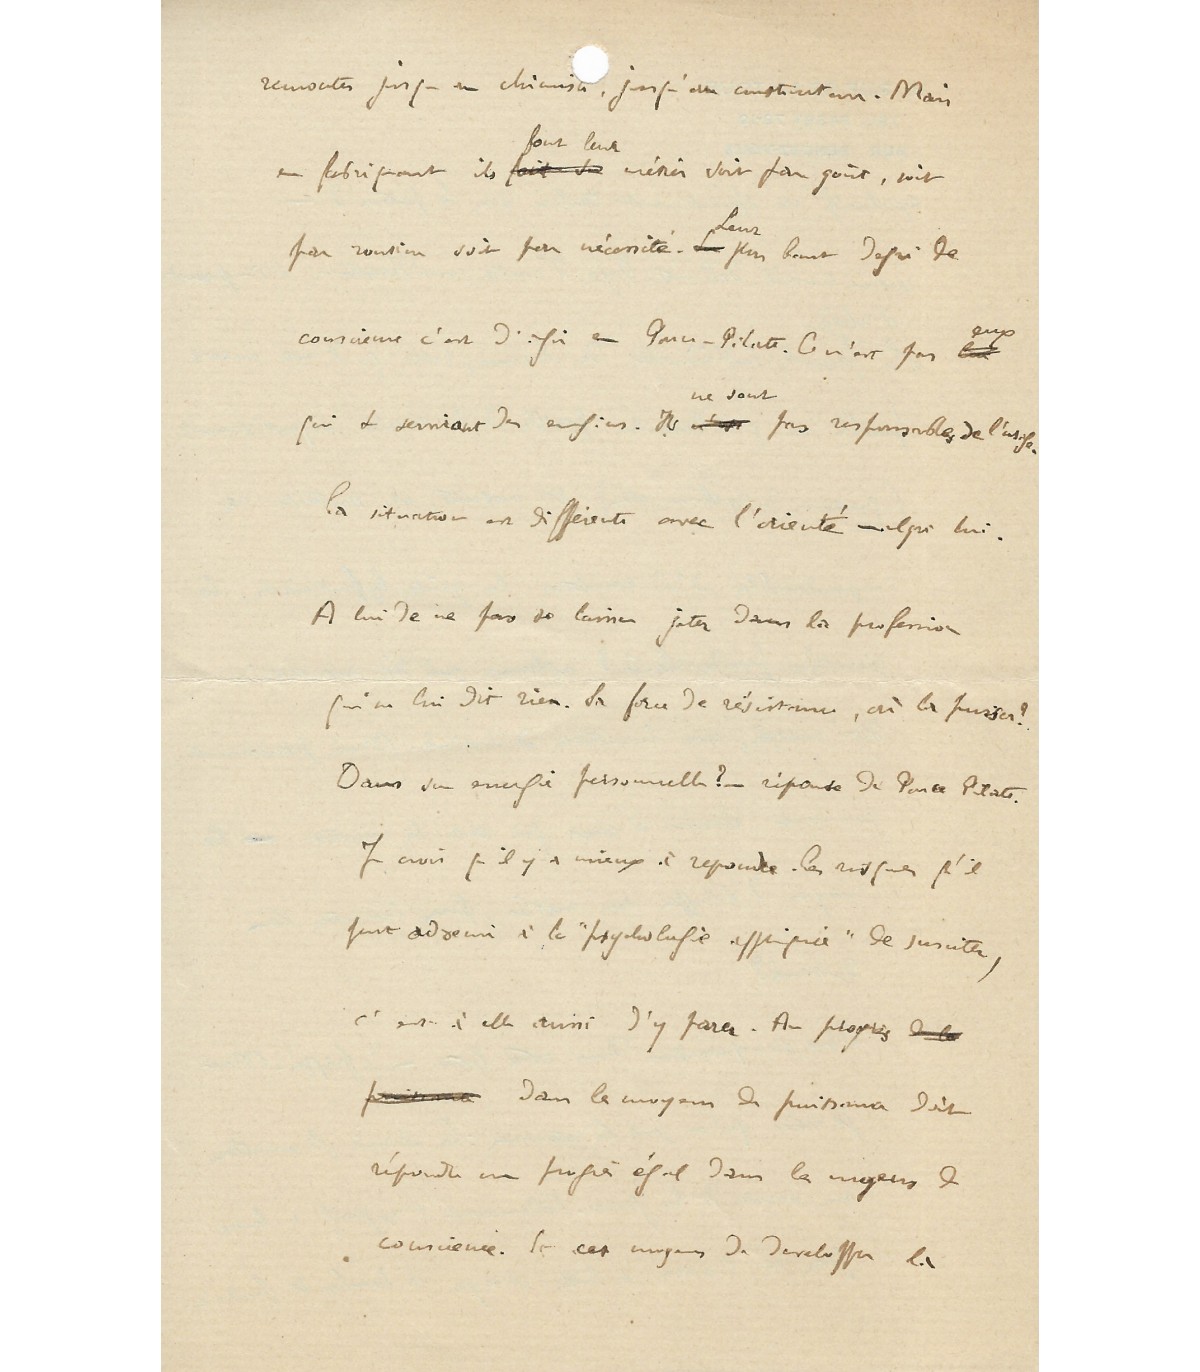 remonter jusqu'au chimiste, jusqu'au constructeur. Mais
font leur
en fabriquant ils fait sa métier soit par goût, soit
Leur
par routine soit par nécessité. L plus haut degré de
conscience c'est d'agir en Ponce-Pilate. Ce n'est pas
eux
lui
ne sont
qui se serviront des engins. Ils n'est pas responsables de l'usage.
La situation est différente avec l'orienté malgré lui.
A lui de ne pas se laisser jeter dans la profession
qui ne lui dit rien. Sa force de résistance, où la puiser?
Dans son energie personnelle? — réponse de Ponce Pilate.
Je crois qu'il y a mieux à repondre. Les risques qu'il
peut advenir à la "psychologie appliquée" de susciter,
c'est à elle aussi d'y parer. Au progrès de la
puissance dans les moyens de puissance doit
répondre un progrès égal dans les moyens de
conscience. Et ces moyens de developper la